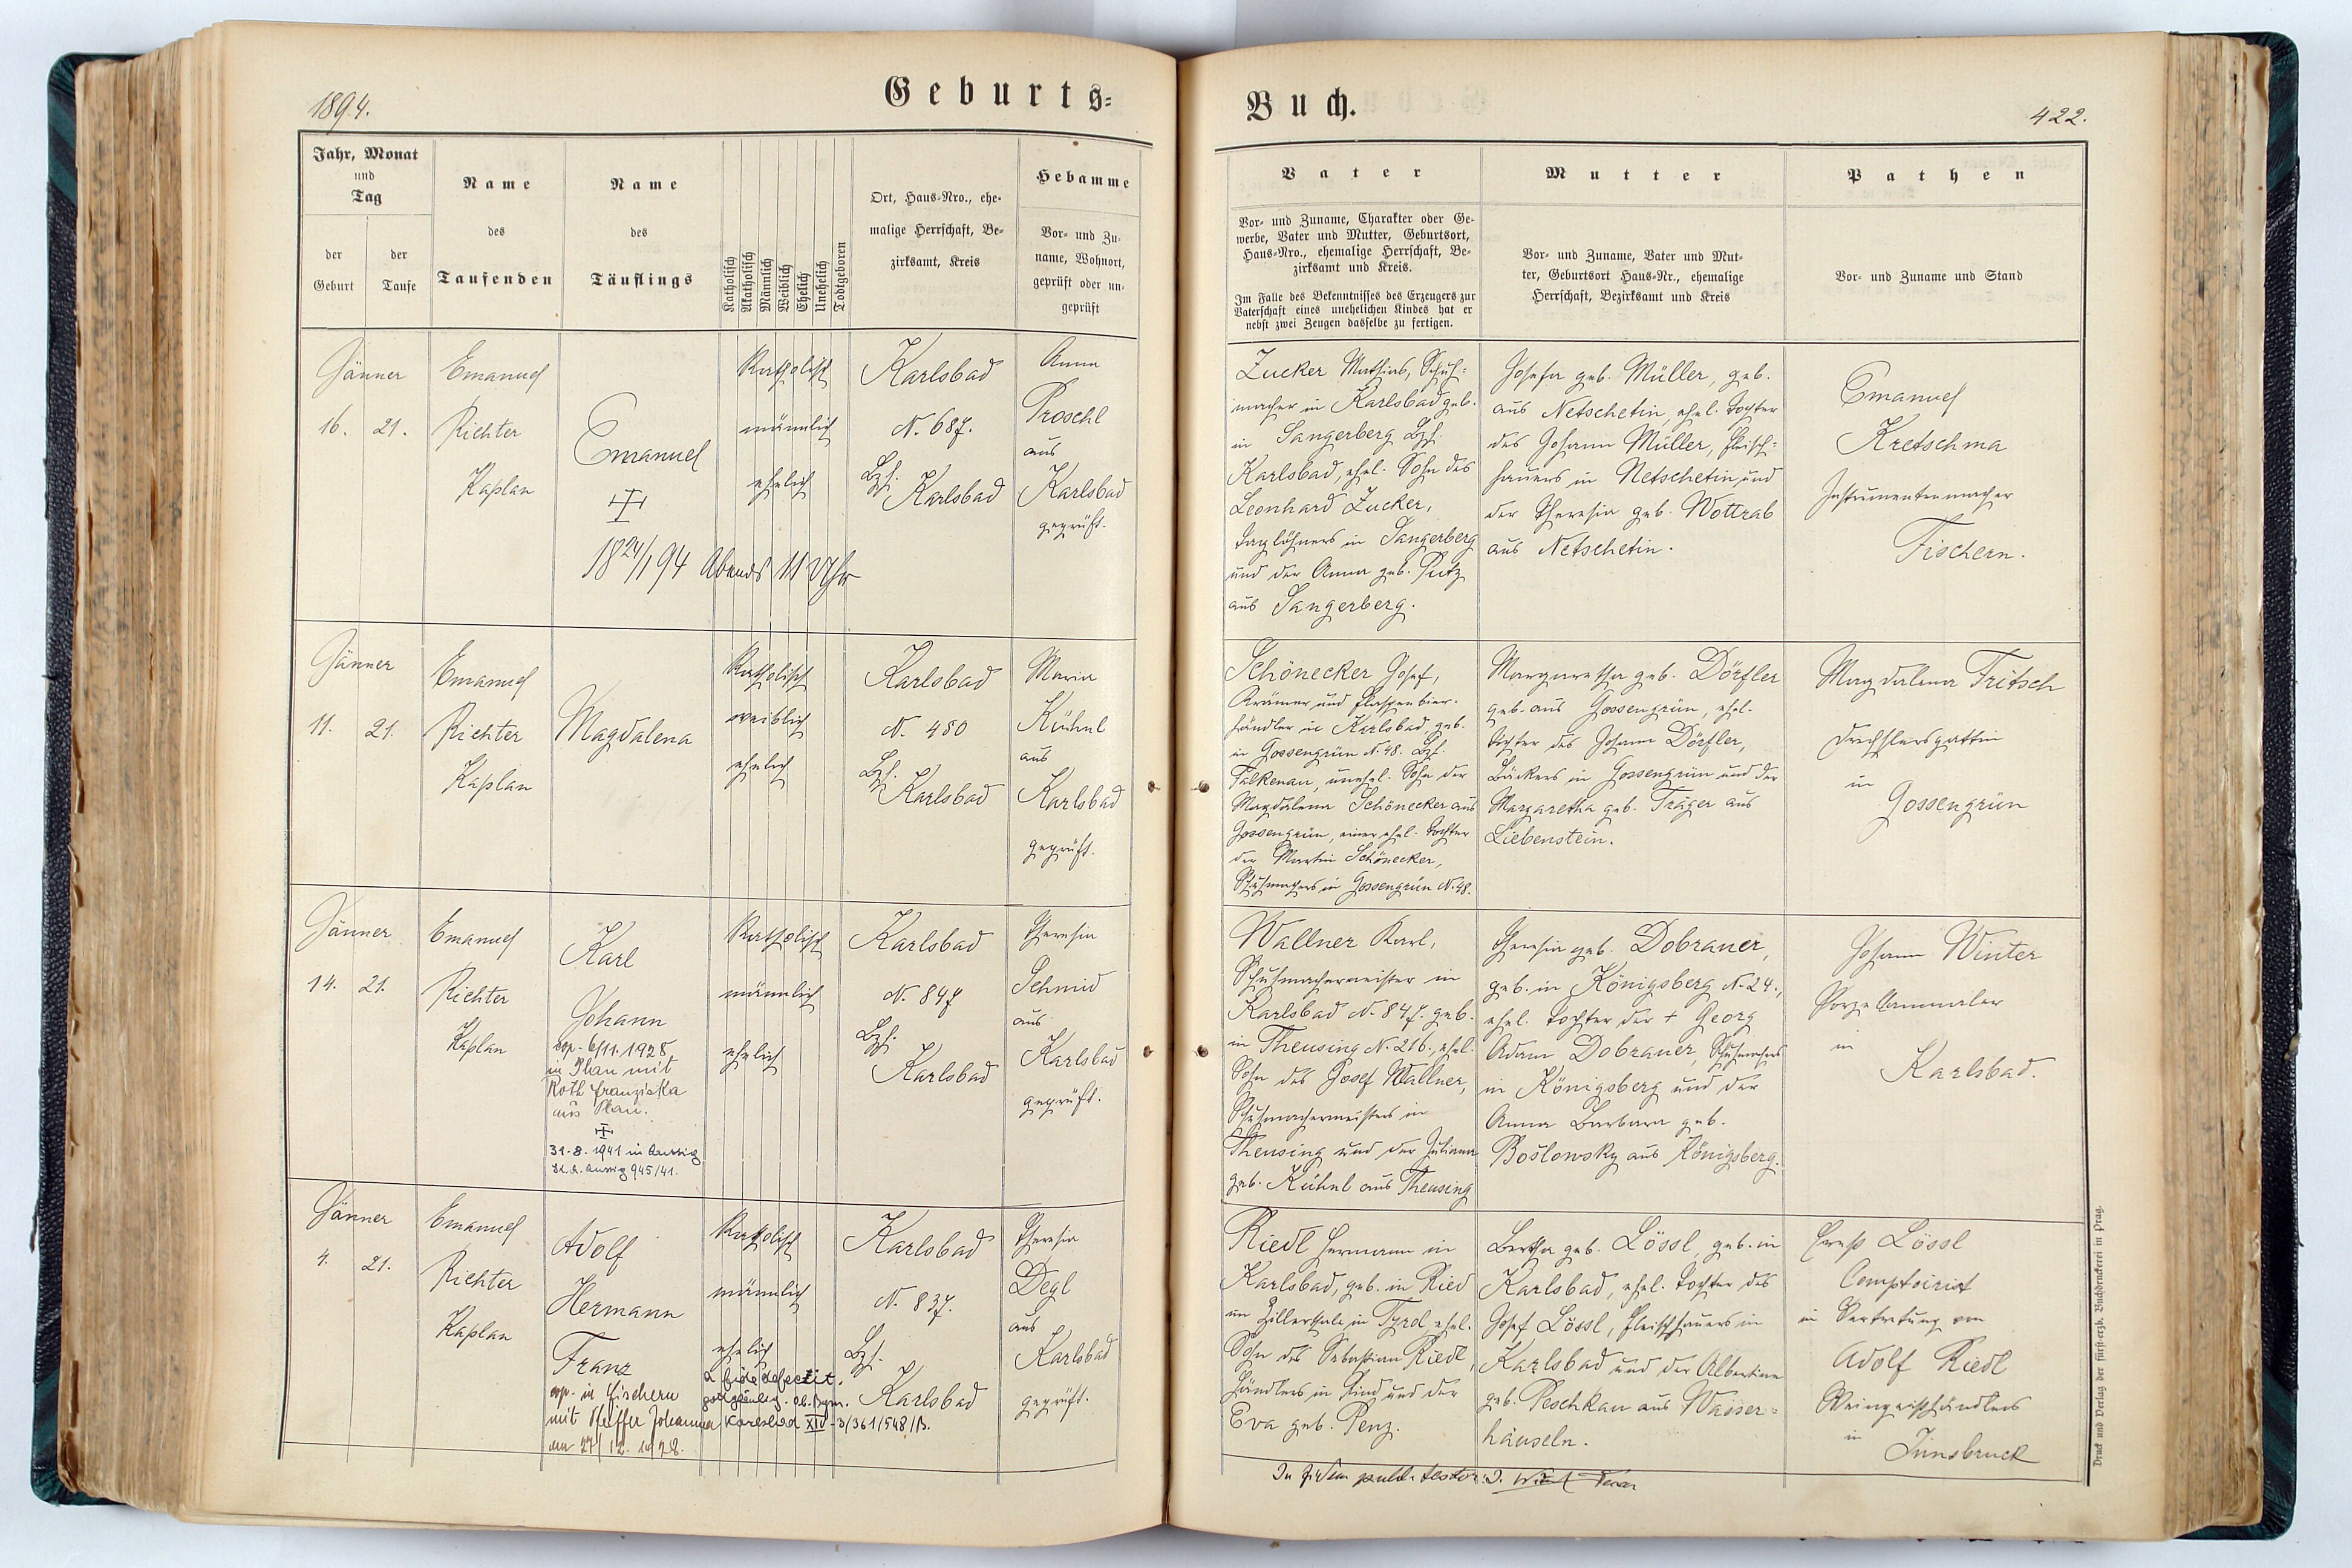 1894.
Geburts=
Jahr, Monat
und
Tag
der
Geburt
der
Taufe
Name
des
Taufenden
Name
des
Täuflings
Katholisch
Akatholisch
Männlich
Weiblich
Ehelich
Unehelich
Todtgeboren
Ort, Haus-Nro., ehe-
malige Herrschaft, Be-
zirksamt, Kreis
Hebamme
Vor- und Zu-
name, Wohnort,
geprüft oder un-
geprüft
Jänner
16. 21.
Emanuel
Richter
Kaplan
Emanuel
18 24/1 94 Abends 11 Uhr
Katholisch
männlich
ehelich
Karlsbad
N. 687.
Bzh.
Karlsbad
Anna
Proschl
aus
Karlsbad
geprüft.
Jänner
11. 21.
Emanuel
Richter
Kaplan
Magdalena
Katholisch
weiblich
ehelich
Karlsbad
N. 480
Bzh.
Karlsbad
Maria
Kühnl
aus
Karlsbad
geprüft.
Jänner
14. 21.
Emanuel
Richter
Kaplan
Karl
Johann
cop. 6/11. 1928
in Plan mit
Roth Franziska
aus Plan.
31.8.1941 in Aussig
St. A. Aussig 945/41.
Katholisch
männlich
ehelich
Karlsbad
N. 847
Bzh.
Karlsbad
Theresia
Schmid
aus
Karlsbad
geprüft.
Jänner
4. 21.
Emanuel
Richter
Kaplan
Adolf
Hermann
Franz
cop. in Fischern
mit Pfeiffer Johanna
am 27/12. 1928.
Katholisch
männlich
ehelich
a fide defecit.
Karlsbad XIV-3/361/548/B.
Karlsbad
N. 837.
Bzh.
Karlsbad
Theresia
Degl
aus
Karlsbad
geprüft.
Buch.
422.
Vater
Vor- und Zuname, Charakter oder Ge-
werbe, Vater und Mutter, Geburtsort,
Haus-Nro., ehemalige Herrschaft, Be-
zirksamt und Kreis.
Im Falle des Bekenntnisses des Erzeugers zur
Vaterschaft eines unehelichen Kindes hat er
nebst zwei Zeugen dasselbe zu fertigen.
Mutter
Vor- und Zuname, Vater und Mut-
ter, Geburtsort Haus-Nr., ehemalige
Herrschaft, Bezirksamt und Kreis
Pathen
Vor- und Zuname und Stand
Zucker Mathias, Schuh=
macher in Karlsbad geb.
in Sangerberg Bzh.
Karlsbad, ehel. Sohn des
Leonhard Zucker,
Taglöhners in Sangerberg
und der Anna geb. Putz
aus Sangerberg.
Josefa geb. Müller, geb.
aus Netschetin, ehel. Tochter
des Johann Müller, Fleisch=
hauers in Netschetin und
der Theresia geb. Wottrab
aus Netschetin.
Emanuel
Kretschma
Instrumentenmacher
Fischern.
Schönecker Josef,
Krämer und Flaschenbier-
händler in Karlsbad, geb.
in Gossengrün N. 48. Bzh.
Falkenau, unehel. Sohn der
Magdalena Schönecker aus
Gossengrün, einer ehel. Tochter
des Martin Schönecker,
Schuhmachers in Gossengrün N. 48.
Margaretha geb. Dörfler
geb. aus Gossengrün, ehel.
Tochter des Johann Dörfler,
Bäckers in Gossengrün und der
Margaretha geb. Träger aus
Liebenstein.
Magdalena Fritsch
Drechslersgattin
in
Gossengrün
Wallner Karl,
Schuhmachermeister in
Karlsbad N. 847. geb.
in Theusing N. 216., ehel.
Sohn des Josef Wallner,
Schuhmachermeisters in
Theusing und der Juliana
geb. Kühnl aus Theusing
Theresia geb. Dobrauer,
geb. in Königsberg N. 24.,
ehel. Tochter des + Georg
Adam Dobrauer, Schuhmachers
in Königsberg und der
Anna Barbara geb.
Boslowsky aus Königsberg.
Johann Winter
Porzellanmaler
in
Karlsbad.
Riedl Hermann in
Karlsbad, geb. in Ried
im Zillerthale in Tyrol ehel.
Sohn des Sebastian Riedl,
Händlers in Ried und der
Eva geb. Penz.
Bertha geb. Lössl, geb. in
Karlsbad, ehel. Tochter des
Josef Lössl, Fleischhauers in
Karlsbad und der Albertine
geb. Peschkau aus Wasser=
häuseln.
Lössl
Comptoirist
in Vertretung von
Adolf Riedl
in
Innsbruck
Druck und Verlag der fürst-erzb. Buchdruckerei in Prag.